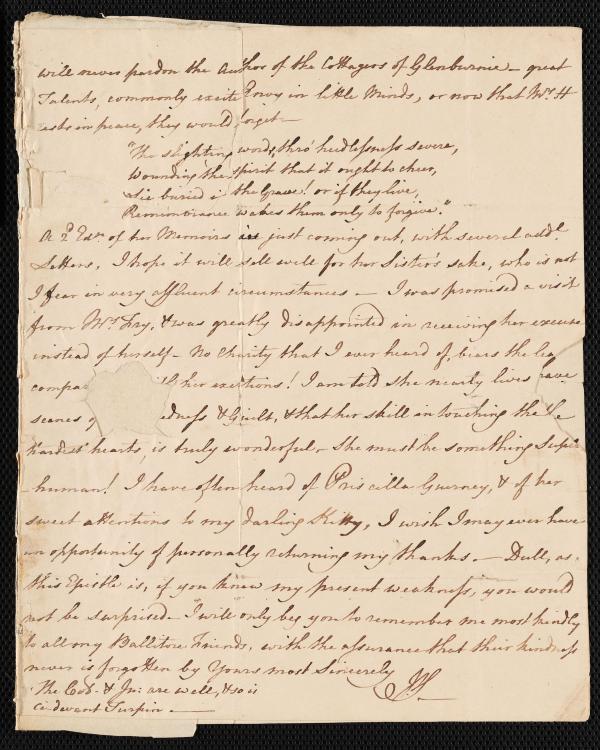 will never pardon the Author of the Cottagers of Glenburnie – great
Talents, commonly excite Envy in little Minds, or now that Mrs. H
rests in peace, they would forget –
"The slighting words, thro' heedlessness severe,
Wounding the Spirit that it ought to cheer,
Lie buried in the Grave! or if they live,
Remembrance wakes them only to forgive."
A 2d. Edn. of her Memoirs is just coming out, with several addl.
Letters, I hope it will sell well for her Sister's sake, who is not
I fear in very affluent circumstances – I was promised a visit
from Mrs. Fry, & was greatly disappointed in receiving her excuse
instead of herself – No charity that I ever heard of, bears the lea
compa her exertions! I am told she nearly lives
scenes edness & Guilt, & that her skill in touching the
hardest hearts, is truly wonderful – She must be something Super
-human! I have often heard of Priscilla Gurney, & of her
sweet attentions to my darling Kitty, I wish I may ever have
an opportunity of personally returning my thanks. – Dull, as
this Epistle is, if you knew my present weakness, you would
not be surprised – I will only beg you to remember me most kindly
to all my Ballitore Friends, with the assurance that their kindness
never is forgotten by Yours most Sincerely
The Col. & Jn: are well, & so is
ci-devant Turpin. –